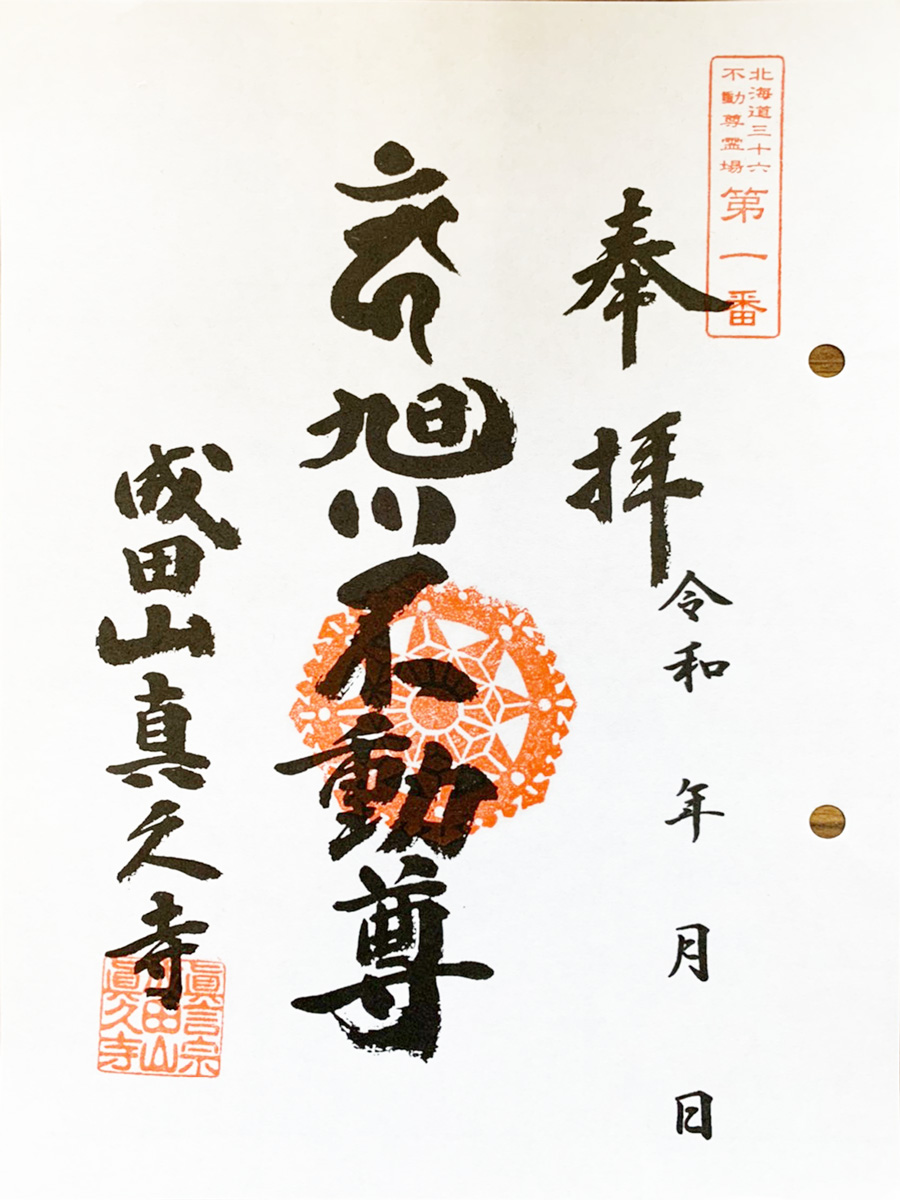 北海道三十六
不動尊霊場
第一番
奉拝
令和 年 月 日
旭川不動尊
成田山真久寺
眞言宗
成田山
眞久寺